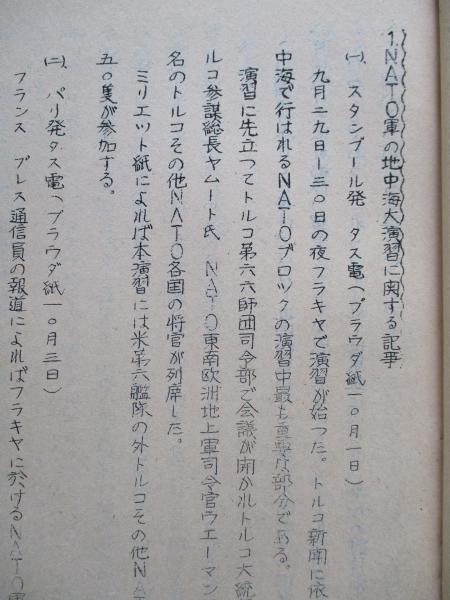 1.NATO軍の地中海大演習に関する記事
(一)、スタンブール発 タス電(プラウダ紙一〇月一日)
九月二九日－三〇日の夜フラキヤで演習が始つた。トルコ新聞に依
中海で行はれるNATOブロックの演習中最も重要な部分である。
演習に先立つてトルコ第六六師団司令部で会議が開かれトルコ大統
ルコ参謀総長ヤムート氏 NATO東南欧洲地上軍司令官ウエーマン
名のトルコその他NATO各国の将官が列席した。
ミリエット紙によれば本演習には米第六艦隊の外トルコその他NA
五〇隻が参加する。
(二)、パリ発タス電(プラウダ紙一〇月三日)
フランス プレス通信員の報道によればフラキヤに於けるNATO軍